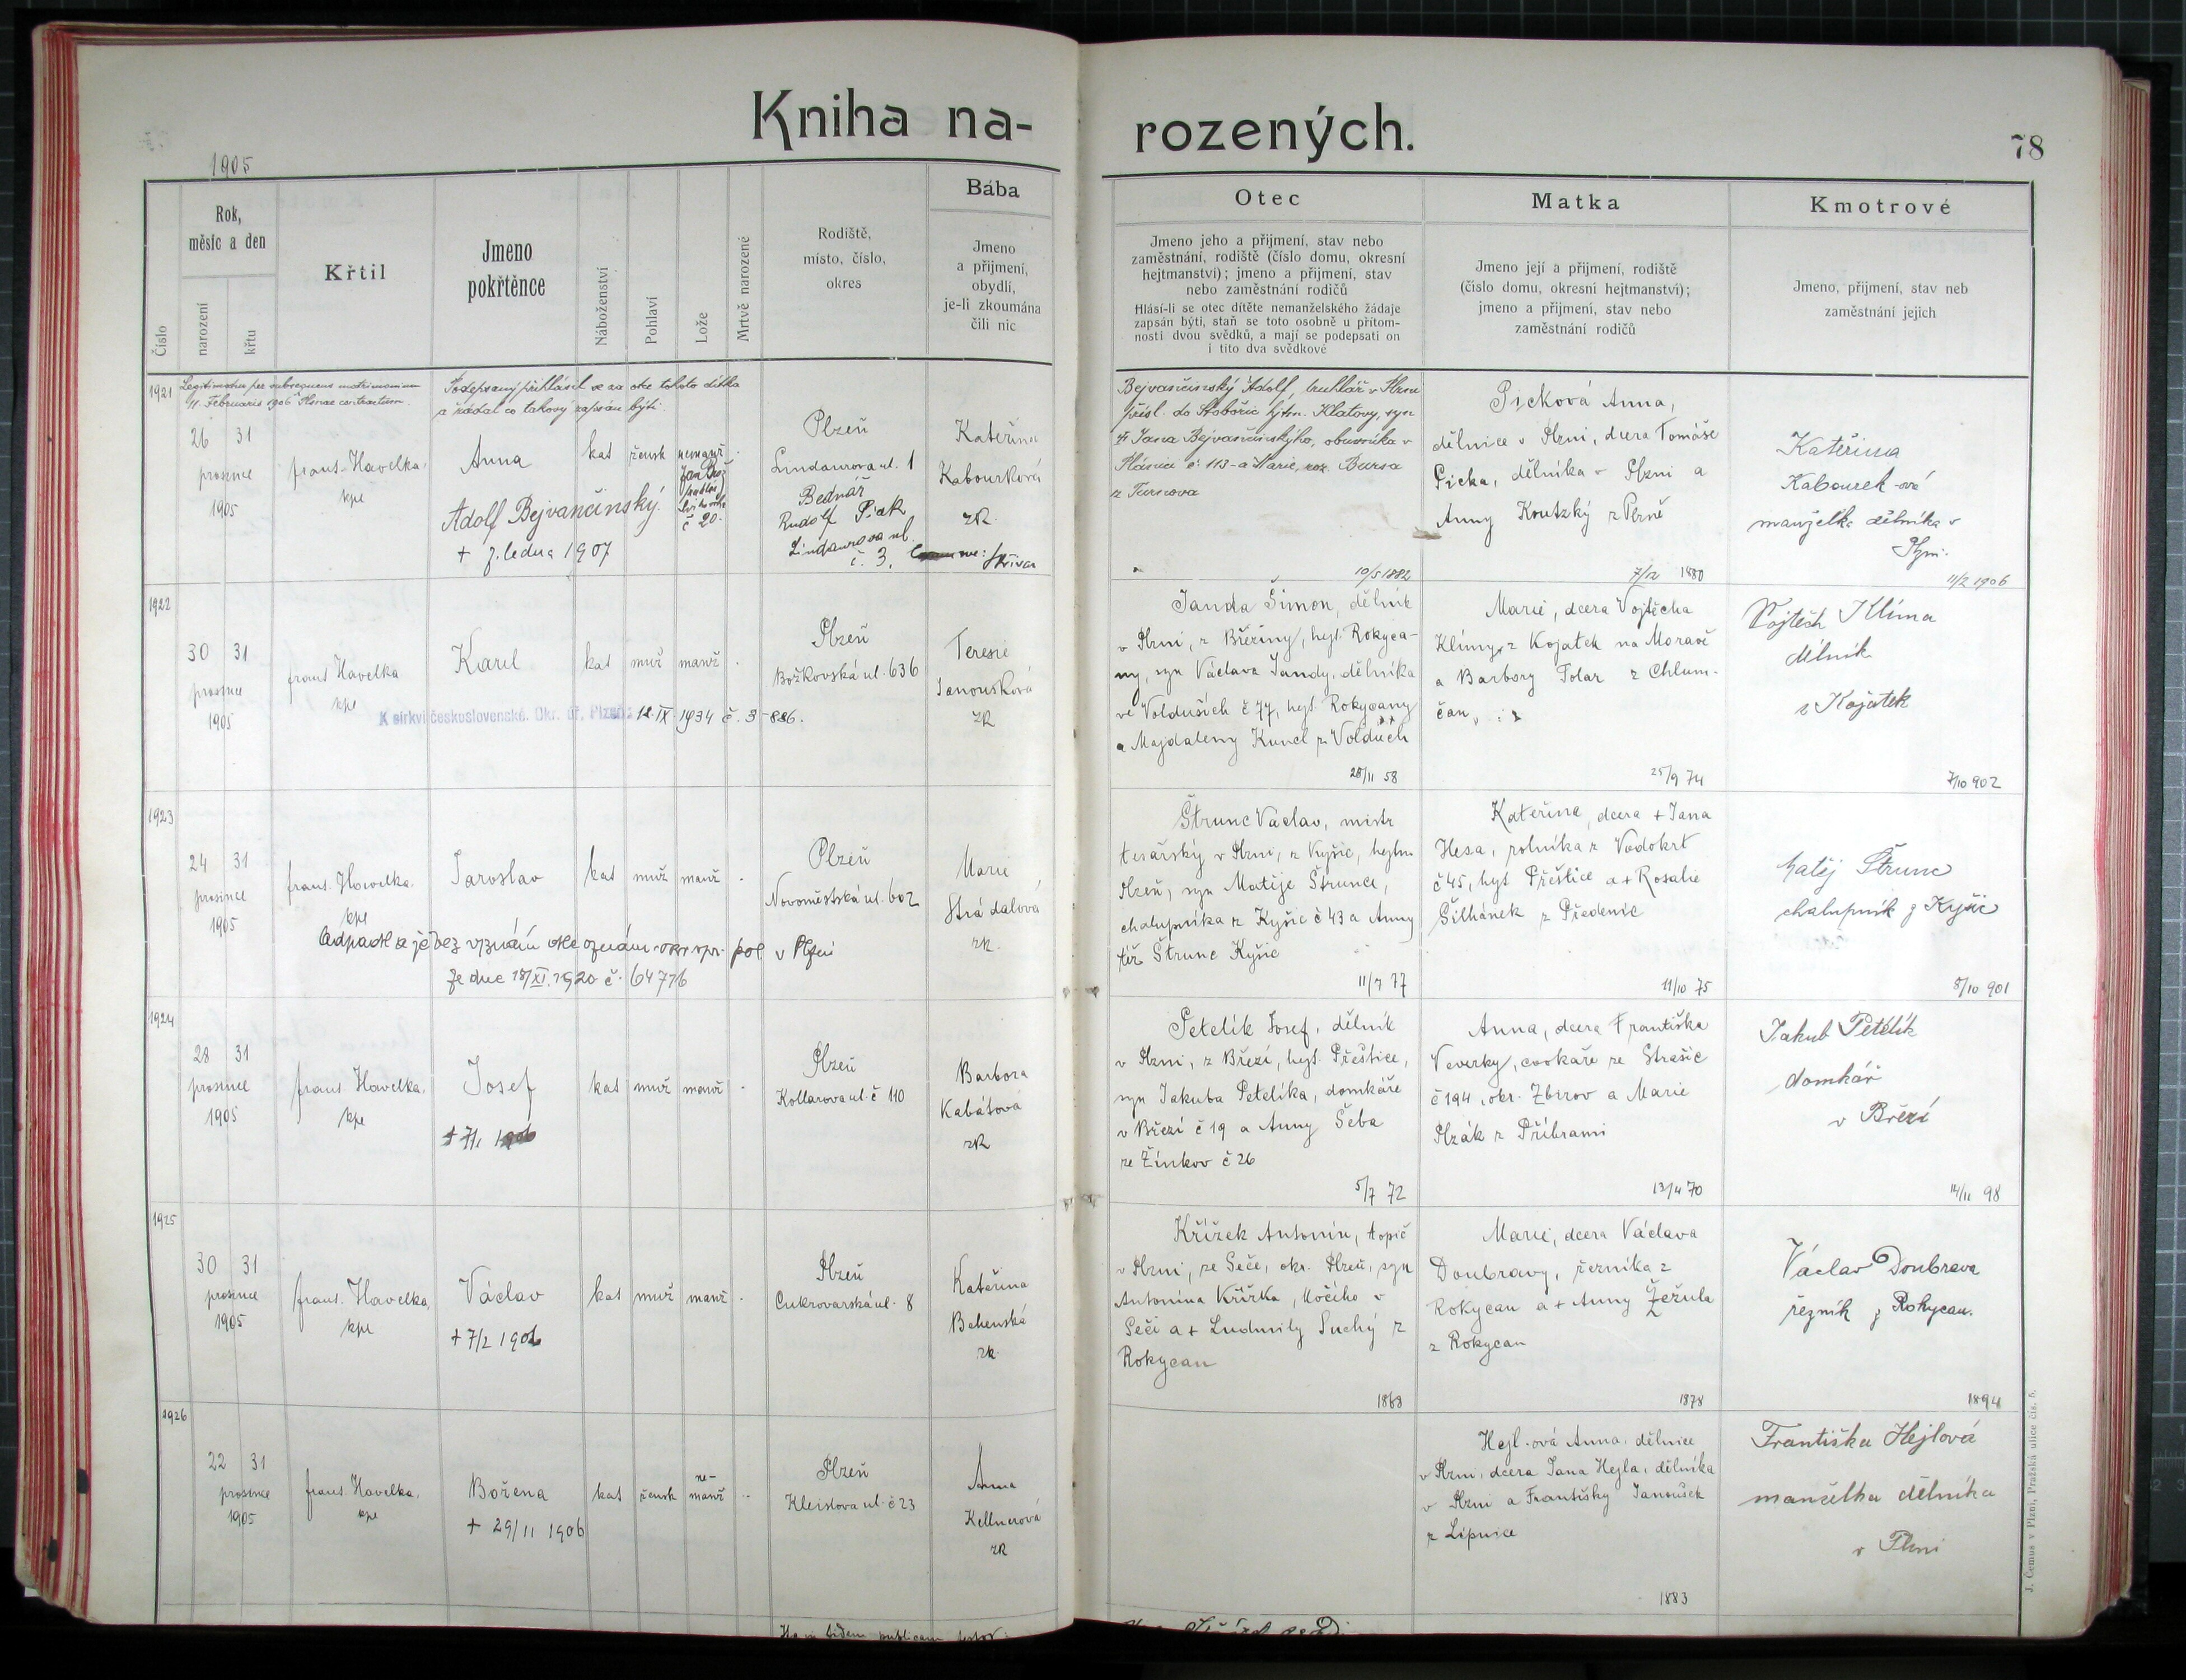 Kniha na-
rozených.
78
1905
Číslo
Rok,
měsíc a den
narození
křtu
Křtil
Jmeno
pokřtěnce
Náboženství
Pohlaví
Lože
Mrtvě narozené
Rodiště,
místo, číslo,
okres
Bába
Jmeno
a přijmení,
obydlí,
je-li zkoumána
čili nic
Otec
Jmeno jeho a přijmení, stav nebo
zaměstnání, rodiště (číslo domu, okresní
hejtmanství); jmeno a přijmení, stav
nebo zaměstnání rodičů
Hlásí-li se otec dítěte nemanželského žádaje
zapsán býti, staň se toto osobně u přítom-
nosti dvou svědků, a mají se podepsati on
i tito dva svědkové
Matka
Jmeno její a přijmení, rodiště
(číslo domu, okresní hejtmanství);
jmeno a přijmení, stav nebo
zaměstnání rodičů
Kmotrové
Jmeno, přijmení, stav neb
zaměstnání jejich
1921
Legitimatus per subsequens matrimonium
11. Februarii 1906 Plsnae contractum.
Podepsaný přihlásil se za otce tohoto dítka
a žádal co takový zapsán býti.
26 31
prosince
1905
frant. Havelka,
kpe
Anna
Adolf Bejvančinský.
+ 7. ledna 1907
kat
žensk
nemanž
č 20.
Plzeň
Lindaurova ul. 1
Bednář
Rudolf Piak
Lindaurova ul.
č. 3.
Kateřina
Kabourková
zk.
Bejvančinský Adolf, truhlář v Plzni
přísl. do Stobořic hjtm. Klatovy, syn
Jana Bejvančinského, obuvníka v
Plánici č. 113 a Marie, roz. Bursa
z Turnova
10/5 1882
Picková Anna,
dělnice v Plzni, dcera Tomáše
Picka, dělníka v Plzni a
Anny Koutzký z Perně
7/12 1880
Kateřina
Kabourek-ová
manželka dělníka v
Plzni.
11/2 1906
1922
30 31
prosince
1905
frant Havelka
kpe
Karel
kat
muž
manž
.
K církvi československé. Okr. úř. Plzeň: 12. IX. 1934 č. 3-886.
Plzeň
Božkovská ul. 636
Teresie
Janoušková
zk
Janda Šimon, dělník
v Plzni, z Březiny, hejt. Rokyca-
ny, syn Václava Jandy, dělníka
ve Voldušich č 77, hejt. Rokycany
a Majdaleny Kuncl z Volduch
28/11 58
Marie, dcera Vojtěcha
Klímy, z Kojatek na Moravě
a Barbory Folar z Chlum-
čan
25/9 74
Vojtěch Klíma
dělník
z Kojatek
7/10 902
1923
24 31
prosince
1905
frant. Havelka,
kpe
Jaroslav
kat
muž
manž
.
Odpadl a je bez vyznání dle oznám. okr. spr. pol. v Plzni
ze dne 18/XI. 1920 č. 64776
Plzeň
Novoměstská ul. 602
Marie
Strádalová
zk.
Štrunc Václav, mistr
tesařský v Plzni, z Kyšic, hejtm.
Plzeň, syn Matěje Štrunce,
chalupníka z Kyšic č 43 a Anny
též Štrunc Kyšic
11/7 77
Kateřina, dcera + Jana
Hesa, rolníka z Vodokrt
č 45, hejt Přeštice a + Rosalie
Šilhánek z Předenic
11/10 75
Matěj Štrunc
chalupník z Kyšic
8/10 901
1924
28 31
prosince
1905
frant. Havelka,
kpe
Josef
+ 7/1 1906
kat
muž
manž
.
Plzeň
Kollarova ul. č 110
Barbora
Kabátová
zk
Petelík Josef, dělník
v Plzni, z Březí, hejt. Přeštice,
syn Jakuba Petelíka, domkáře
v Březí č 19 a Anny Šeba
ze Žinkov č 26
5/7 72
Anna, dcera Františka
Veverky, cvokaře ze Strašic
č 194, okr. Zbirov a Marie
Plzák z Příbrami
13/4 70
Jakub Petelík
domkář
v Březí
14/11 98
1925
30 31
prosince
1905
frant. Havelka,
kpe
Václav
+ 7/2 1906
kat
muž
manž
.
Plzeň
Cukrovarská ul. 8
Kateřina
Bahenská
zk.
Křížek Antonín, topič
v Plzni, ze Seče, okr. Plzeň, syn
Antonína Křížka, kočího v
Seči a + Ludmily Suchý z
Rokycan
1868
Marie, dcera Václava
Doubravy, řezníka z
Rokycan a + Anny Žežula
z Rokycan
1878
Václav Doubrava
řezník z Rokycan.
1894
1926
22 31
prosince
1905
frant. Havelka,
kpe
Božena
+ 29/11 1906
kat
žensk
ne-
manž
.
Plzeň
Kleislova ul. č 23
Anna
Kellnerová
zk
Hejl-ová Anna, dělnice
v Plzni, dcera Jana Hejla, dělníka
v Plzni a Františky Janoušek
z Lipnice
1883
Františka Hejlová
manželka dělníka
v Plzni
J. Čemus v Plzni, Pražská ulice čís. 5.